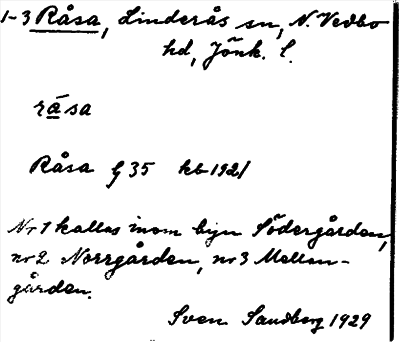 1-3 Råsa, Linderås sn, N. Vedbo
hd, Jönk. l.
råsa
Råsa G 35 kb 1921
Nr 1 kallas inom byn Södergården,
nr 2 Norrgården, nr 3 Mellan-
gården.
Sven Sandberg 1929